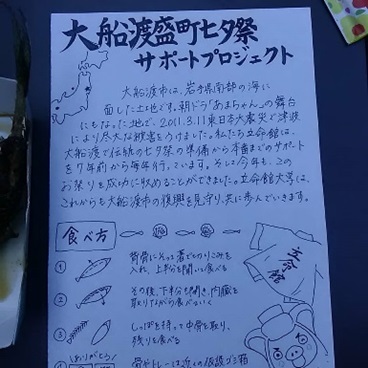 大船渡盛町七夕祭
サポートプロジェクト
大船渡市は、岩手県南部の海に
面した土地です。朝ドラ「あまちゃん」の舞台
にもなった地で、2011.3.11東日本大震災で津波
により尽大な被害をうけました。私たち立命館は、
大船渡で伝統の七夕祭の準備から本番までのサポート
を7年前から毎年行っています。そして今年も、この
お祭りを成功に収めることができました。立命館大学は、
これからも大船渡市の復興を見守り、共に歩んでいきます。
食べ方
① 背骨にそって箸でのりこみを
入れ、上半分を開いて食べる
② その後、下半分も開き、内臓を
取りながら食べていく
③ しっぽを持って中骨を取り、
残りを食べる
④ 骨やトレーは近くの仮設ゴミ箱
ありがとう
立命館